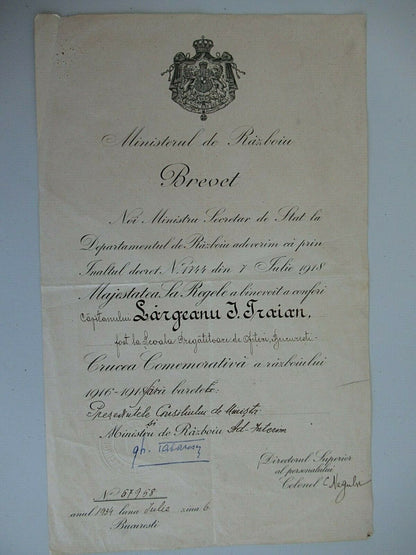 Ministerul de Războiu
Brevet
Noi Ministru Secretar de Stat la
Departamentul de Războiu adeverim că prin
Inaltul decret No. 1744 din 7 Iulie 1918
Majestatea Sa Regele a binevoit a conferi
Căpitanului Lărgeanu I. Traian,
fost la Școala Pregătitoare de Artilerie, București
Crucea Comemorativă a răsboiului
1916-1918 fără baretele:
Președintele Consiliului de Miniștri
și
Ministru de Războiu Ad-Interim
Gh. Tătărescu
Directorul Superior
al personalului
Colonel
No 57958
anul 1934 luna Iulie ziua 6
Bucuresti